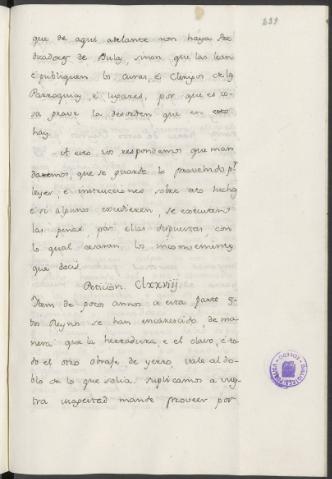 que de aqui adelante non haya Pre
dicadores de Bula, sinon que las lean
e publiquen los curas, e Clerigos de las
Parroquias, e lugares, por que es co
sa grave la desorden que en esto
hay.
A esto vos respondemos que man
daremos, que se guarde lo provehido pr.
leyes, e instrucciones sobre esto hechas
e si algunos excedieren, se executaran
las penas por ellas dispuestas, con
lo qual cesaran los inconvenientes
que decis.
Peticion. CLxxviij
Item de pocos annos a esta parte en es
tos Reynos se han encarescido, de ma
nera que la herradura, e el clavo, e to
do el otro obraje de yerro vale al do
blo de lo que solia. suplicamos a vues
tra magestad mande proveer por